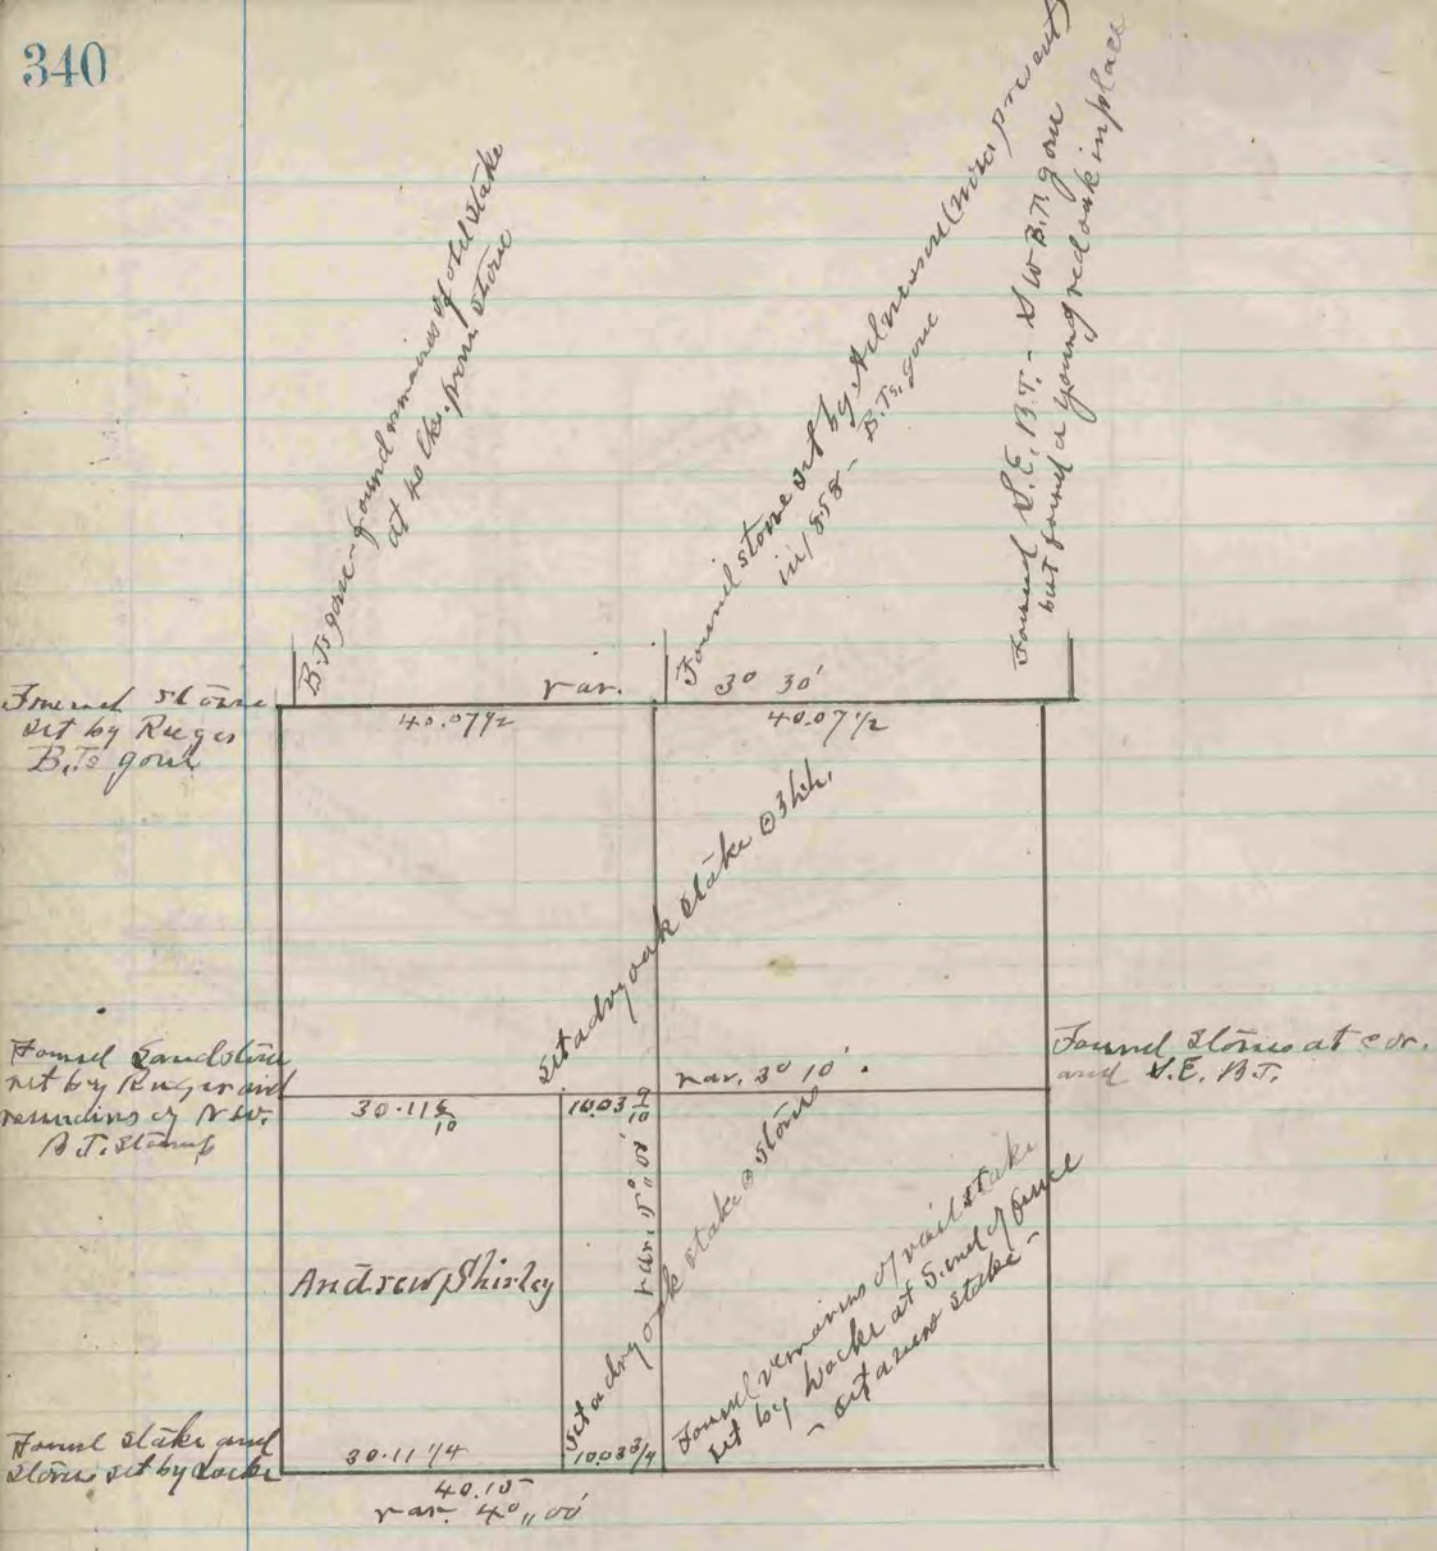 340
B.Ts gone - found remains of old stake
at 40 lks. from stone
Found stone set by
in 1858 - B.Ts. gone
Found S.E. B.T. - S W B.T. gone
but found a young red oak in place
var. 3° 30'
Found stone
set by Ruger
B.Ts gone
40.07 1/2
40.07 1/2
Set a dry oak stake @ 3
Found Sandstone
set by Ruger and
remains of N.W.
B.T. Stump
var. 3° 10'
Found Stones at cor.
and S.E. B.T.
30.11 6/10
10.03 9/10
var. 5°,, 00'
Set a dry oak stake @ stones
Andrew Shirley
Found remains of rail stake
set by Locke at S. end of fence
- set a new stake -
Found stake and
stones set by Locke
30.11 1/4
10.03 3/4
40.15
var. 4°,, 00'